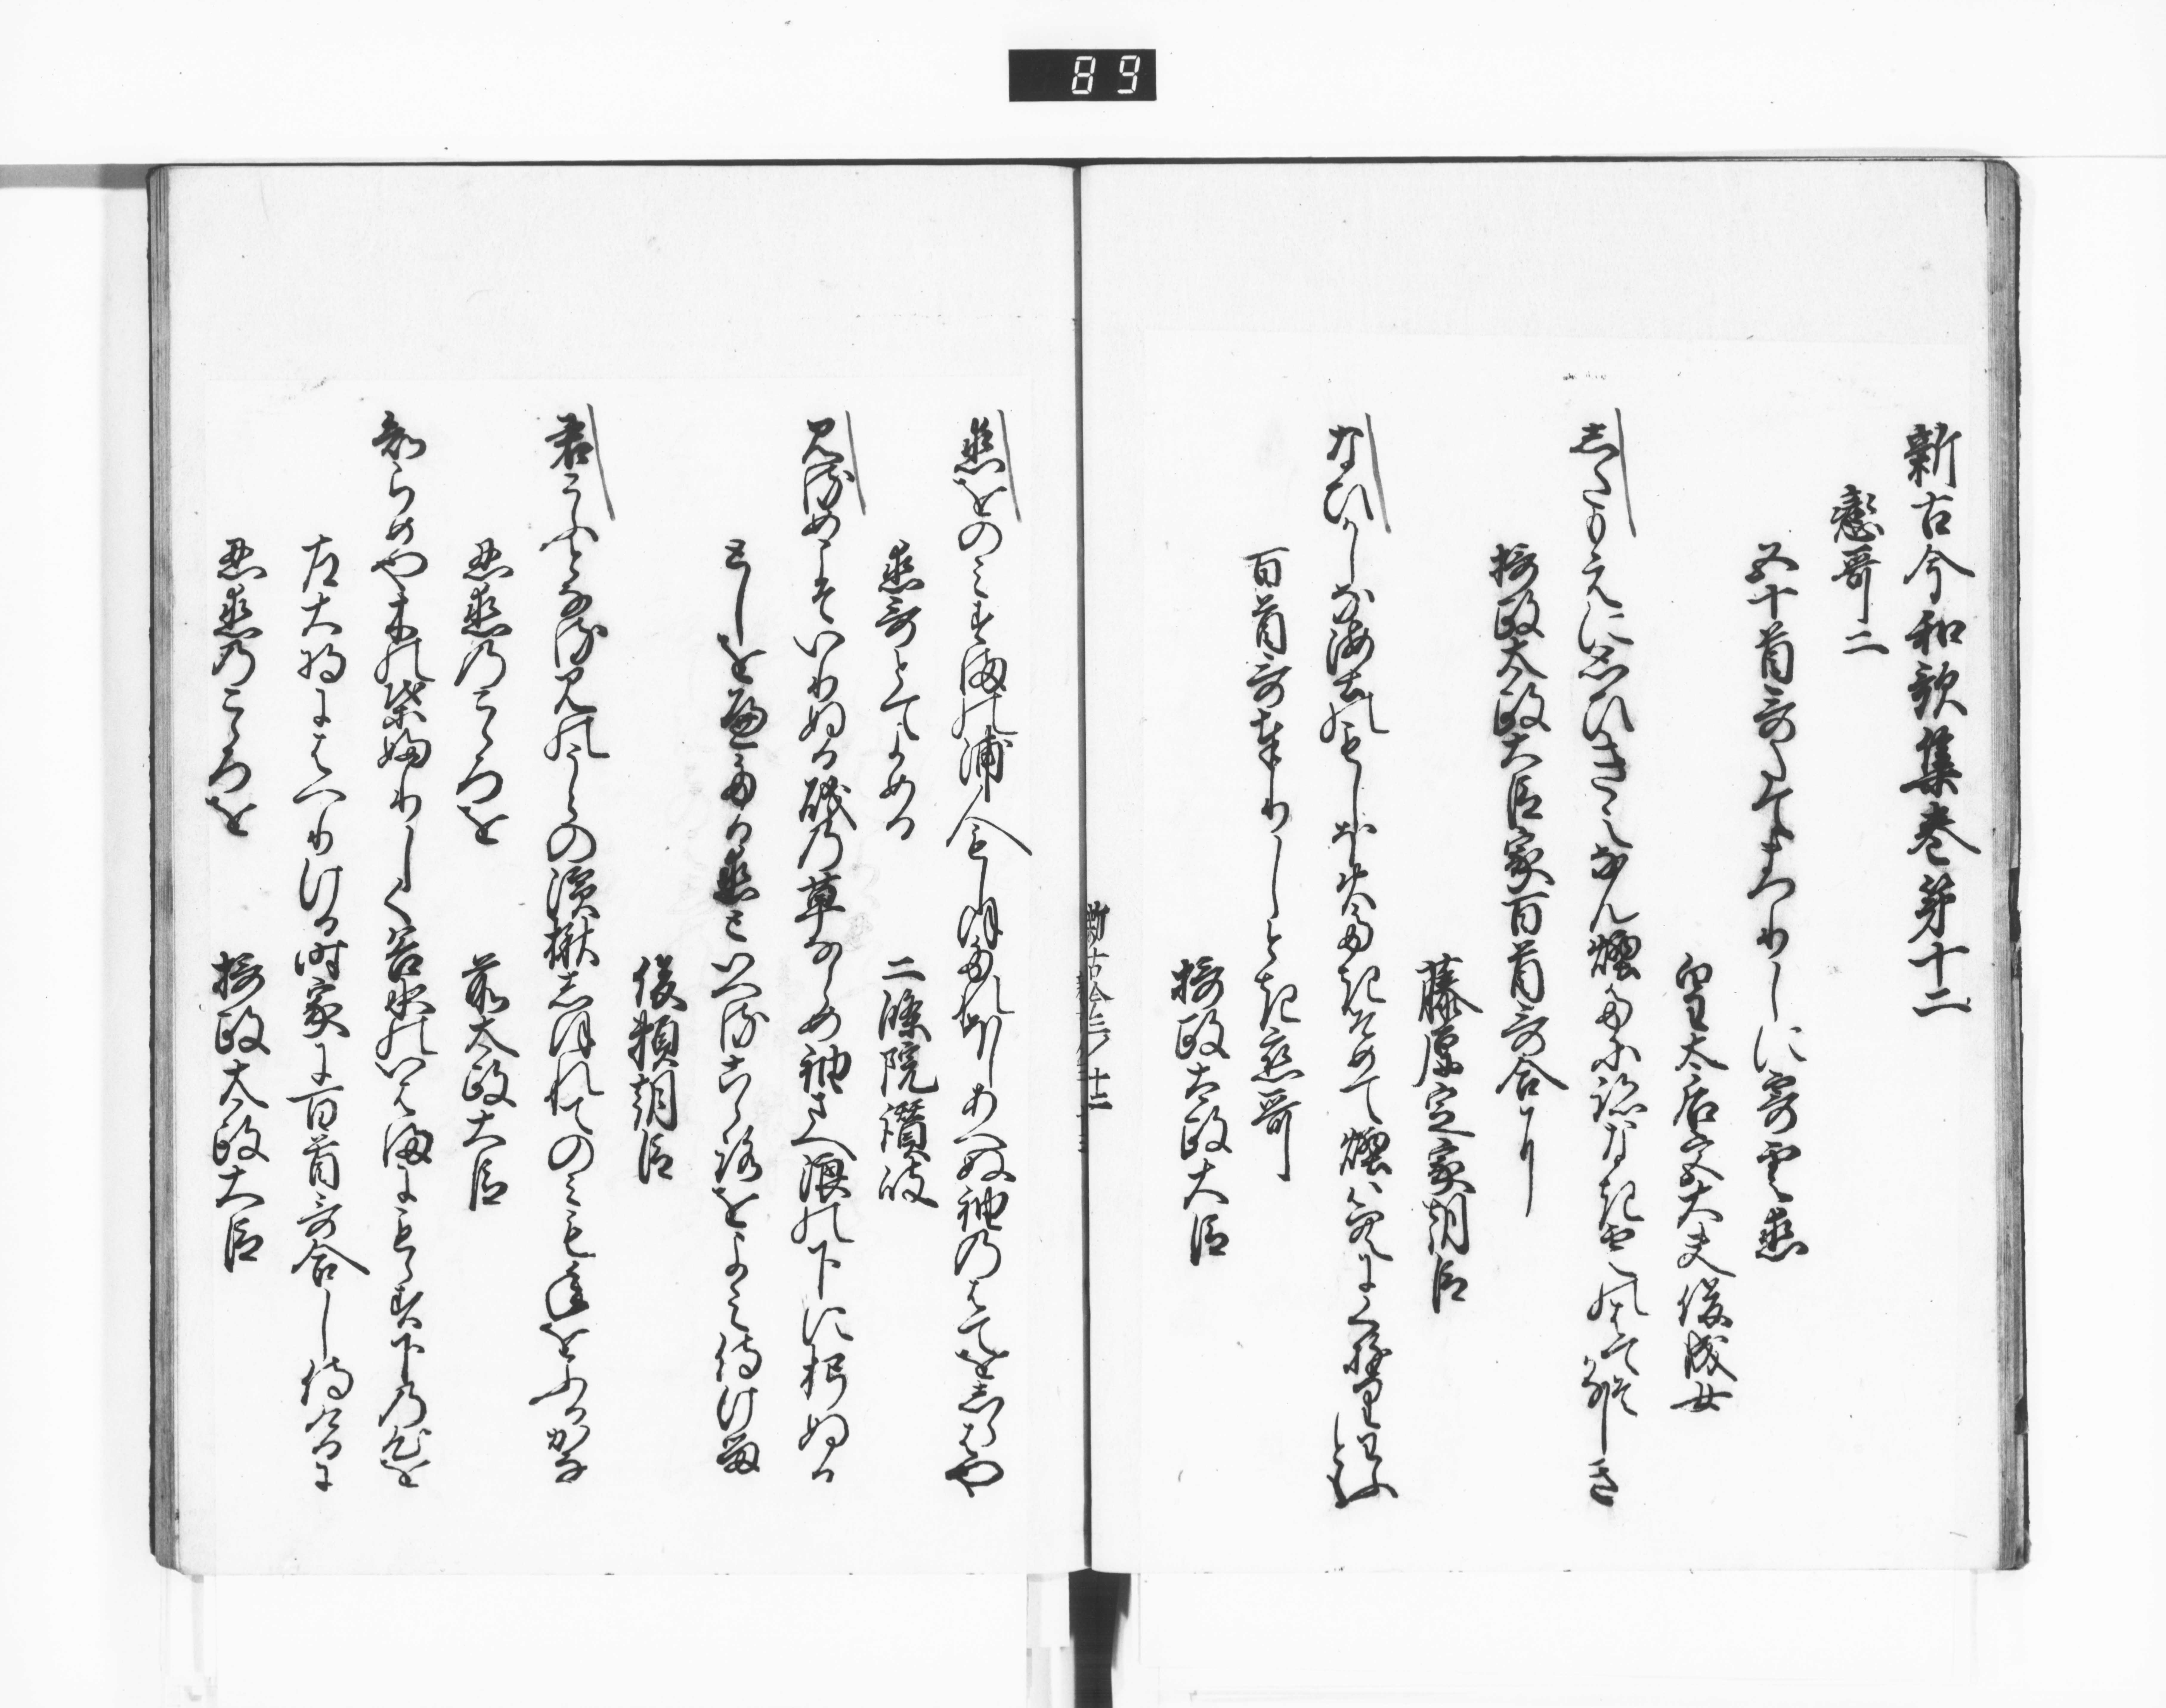 89
新古今和歌集巻第十二
恋哥二
五十首哥たてまつりしに寄雲恋
皇太后宮大夫俊成女
したもえに思ひきえなん煙たに跡なき雲のはてそかなしき
摂政太政大臣家百首哥合に
藤原定家朝臣
なひかしな海士のもしほ火たき初て煙は空にくゆりわふとも
百首哥奉りしとき恋哥
摂政太政大臣
恋をのみすまの浦人もしほたれほしあへぬ袖のはてをしらはや
恋哥とてよめる
二條院讃岐
見るめこそいりぬる磯の草ならめ袖さへ浪の下に朽ぬる
としをへたる恋といへるこゝろをよみ侍ける
俊頼朝臣
君こふとなるみの浦の濱楸しほれてのみも年をふるかな
忍恋のこゝろを
前太政大臣
知らめや木の葉ふりしく谷水のいはまにもらす下の心を
左大将にはへりける時家に百首哥合し侍けるに
忍恋のこゝろを
摂政太政大臣